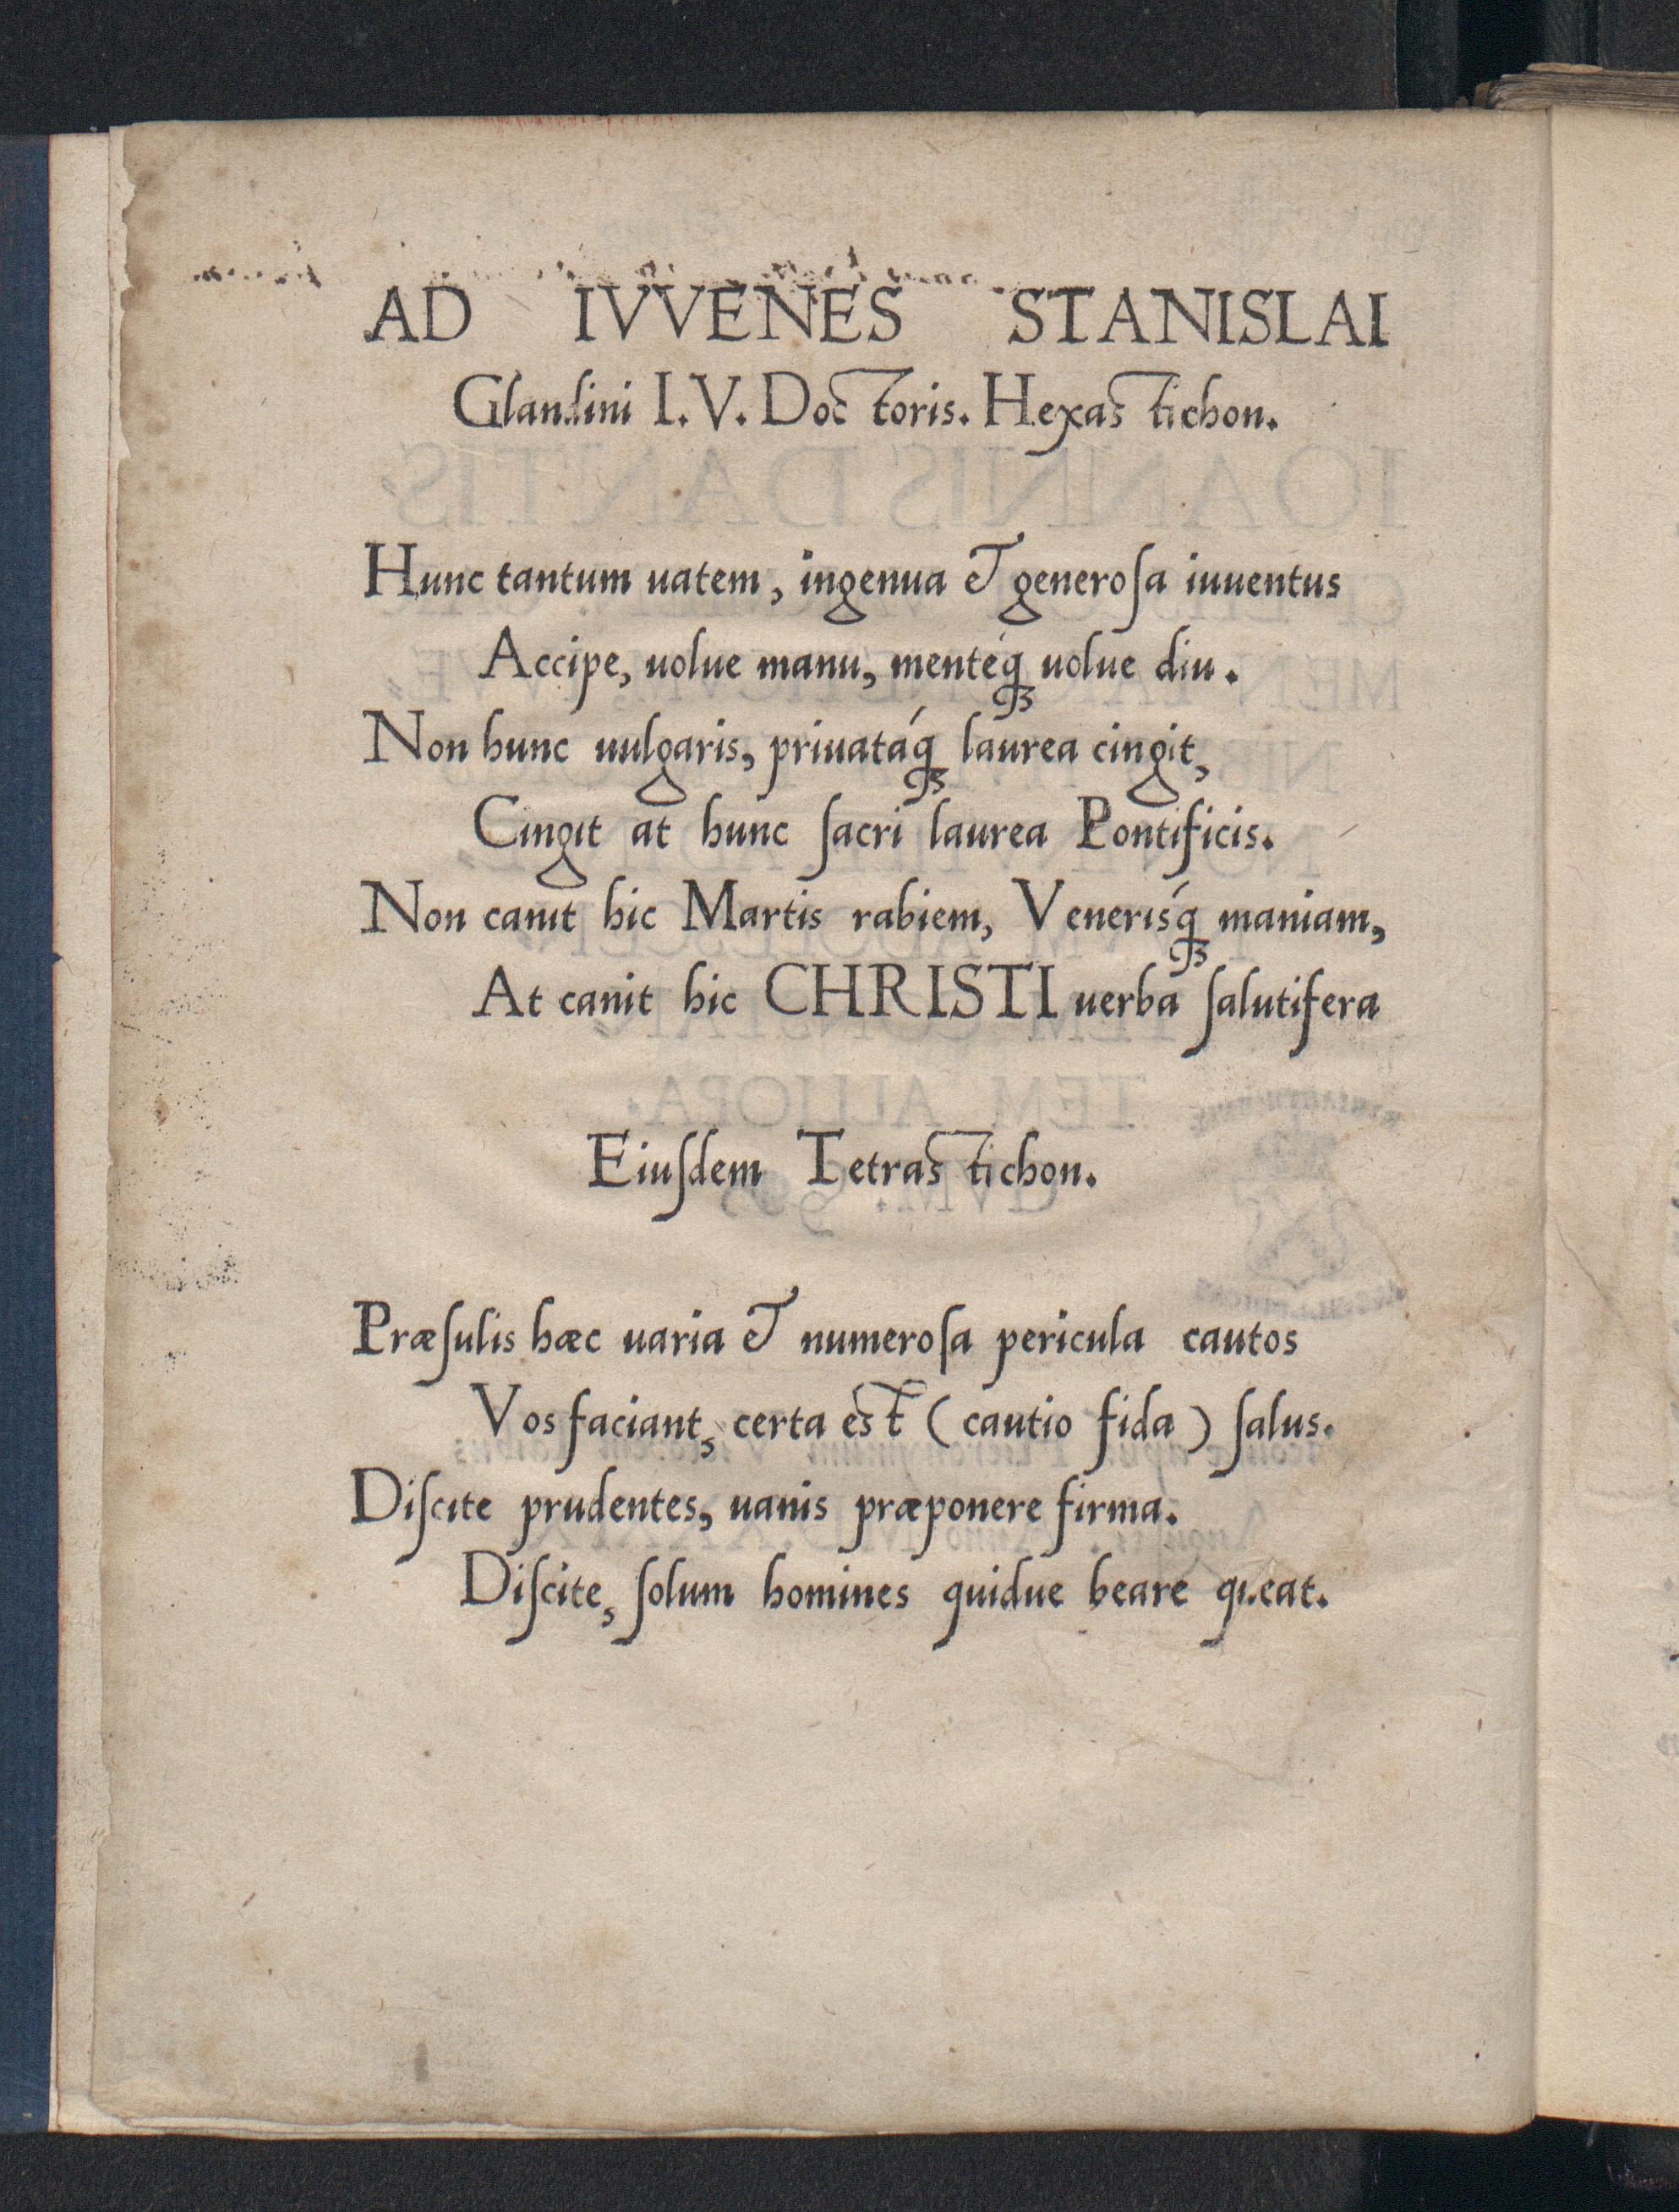 AD IVVENES STANISLAI
Glandini I. V. Doctoris. Hexastichon.
Hunc tantum uatem, ingenua & generoſa iuuentus
Accipe, uolue manu, mentéqꝫ uolue diu.
Non hunc uulgaris, priuatáqꝫ laurea cingit,
Cingit at hunc ſacri laurea Pontificis.
Non canit hic Martis rabiem, Venerisqꝫ́ maniam,
At canit hic CHRISTI uerba ſalutifera
Eiuſdem Tetrastichon.
Præſulis hæc uaria & numeroſa pericula cautos
Vos faciant, certa est (cautio fida) ſalus.
Diſcite prudentes, uanis præponere firma.
Diſcite, ſolum homines quidue beare queat.